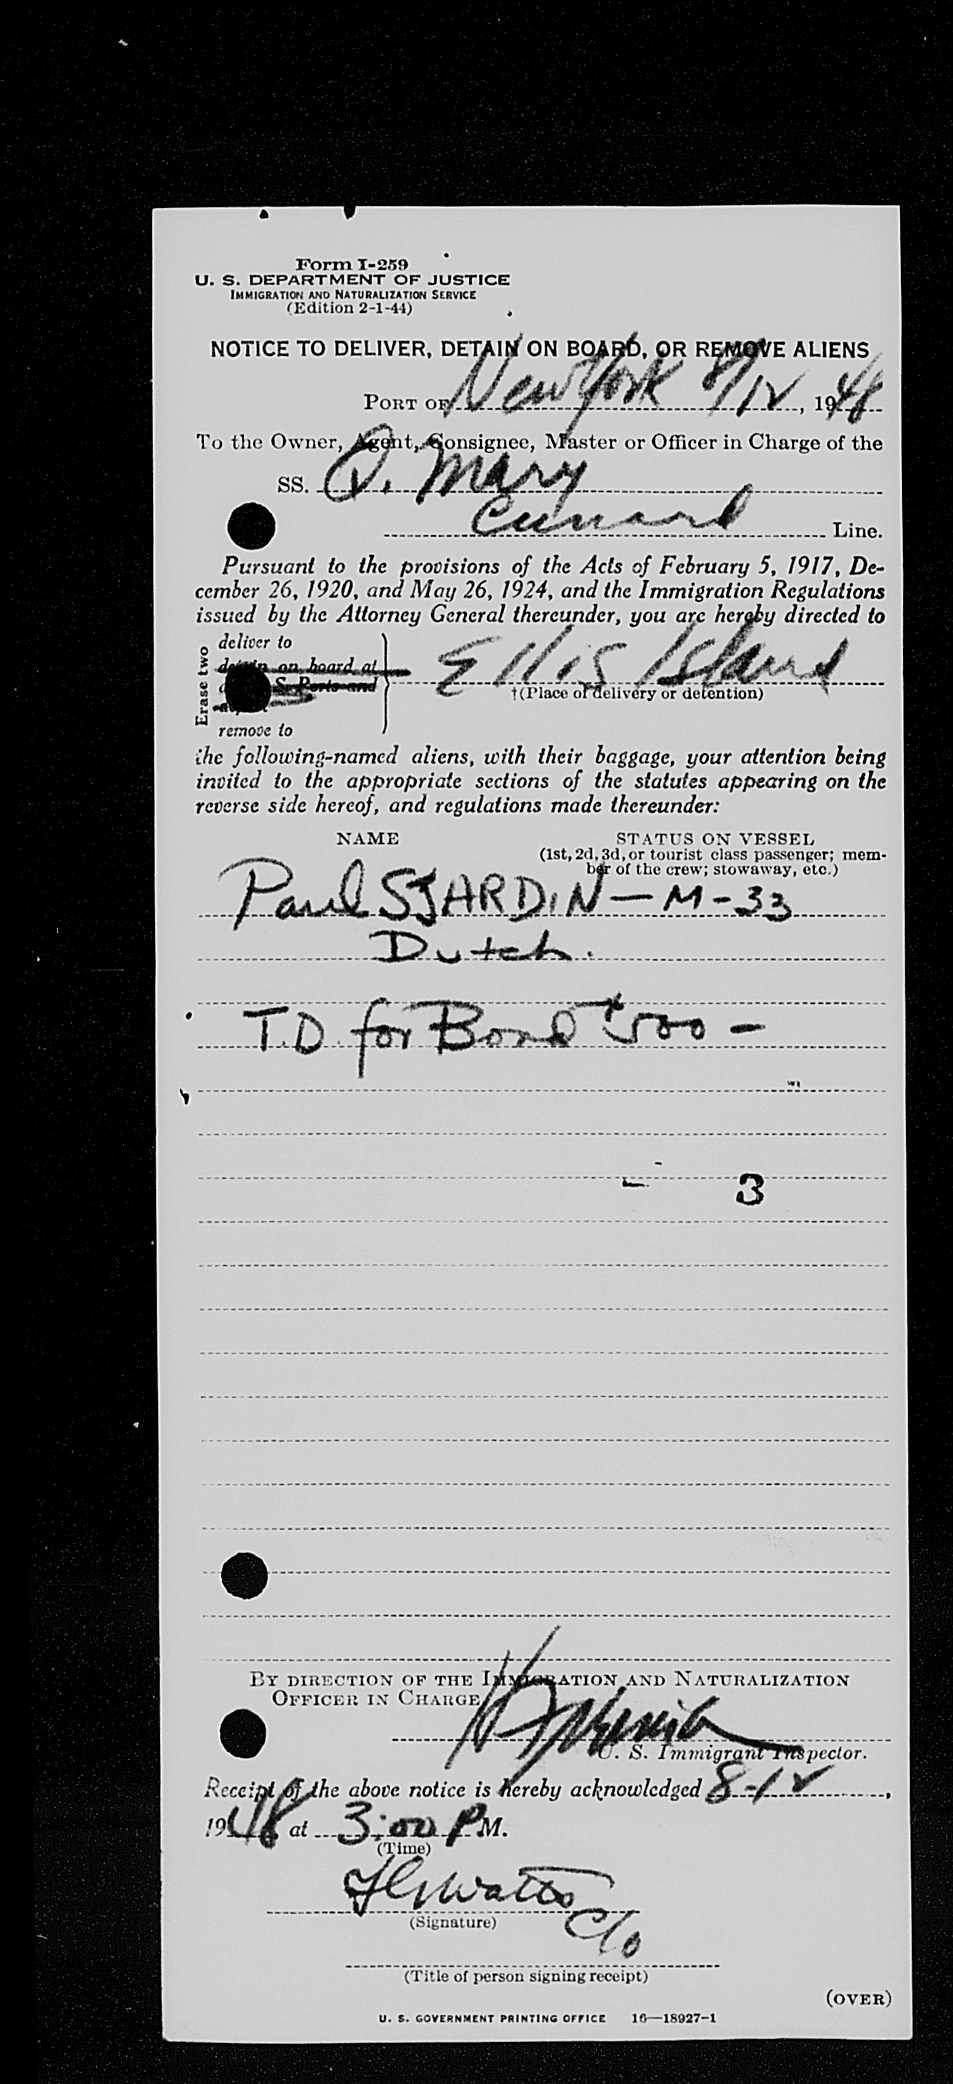 Form I-259
U. S. DEPARTMENT OF JUSTICE
IMMIGRATION AND NATURALIZATION SERVICE
(Edition 2-1-44)
NOTICE TO DELIVER, DETAIN ON BOARD, OR REMOVE ALIENS
PORT OF New York 8/12, 1948
To the Owner, Agent, Consignee, Master or Officer in Charge of the
SS. Q. Mary
Cunard Line.
Pursuant to the provisions of the Acts of February 5, 1917, De-
cember 26, 1920, and May 26, 1924, and the Immigration Regulations
issued by the Attorney General thereunder, you are hereby directed to
Erase two
deliver to
detain on board at
S. Ports and
remove to
Ellis Island
†(Place of delivery or detention)
the following-named aliens, with their baggage, your attention being
invited to the appropriate sections of the statutes appearing on the
reverse side hereof, and regulations made thereunder:
NAME STATUS ON VESSEL
(1st, 2d, 3d, or tourist class passenger; mem-
ber of the crew; stowaway, etc.)
Paul SJARDIN — M - 33
Dutch.
T.D. for Bond $500 —
3
BY DIRECTION OF THE IMMIGRATION AND NATURALIZATION
OFFICER IN CHARGE
U. S. Immigrant Inspector.
Receipt of the above notice is hereby acknowledged 8-12,
1948 at 3:00 P M.
(Time)
Watts
(Signature)
C/o
(Title of person signing receipt)
(OVER)
U. S. GOVERNMENT PRINTING OFFICE 16—18927-1